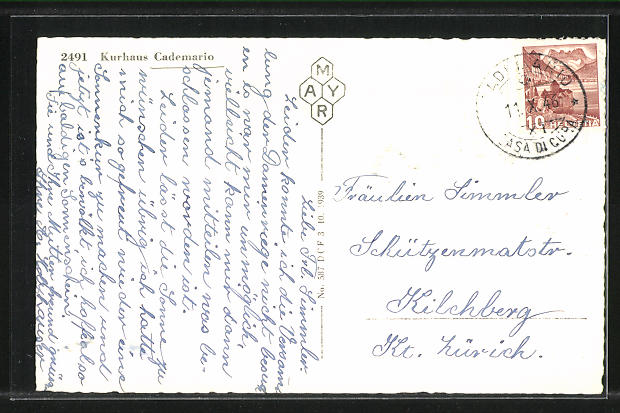 2491 Kurhaus Cademario
MAYR
No. 567 D C F 3. 10. 1939
CADEMARIO
11.X.46
CASA DI CURA
10
HELVETIA
Liebe Frl. Simmler
Leider konnte ich die Versamm-
lung der Damenriege nicht besuch-
en es war mir unmöglich,
vielleicht kann mir dann
jemand mitteilen was be-
schlossen worden ist.
Leider lässt die Sonne zu
wünschen übrig ich hatte
mich so gefreut wieder eine
Sonnenkur zu machen und
jetzt ist's bewölkt, ich hoffe also
auf baldigen Sonnenschein.
Sie und Ihre Mutter
Fräulien Simmler
Schützenmatstr.
Kilchberg
Kt. Zürich.